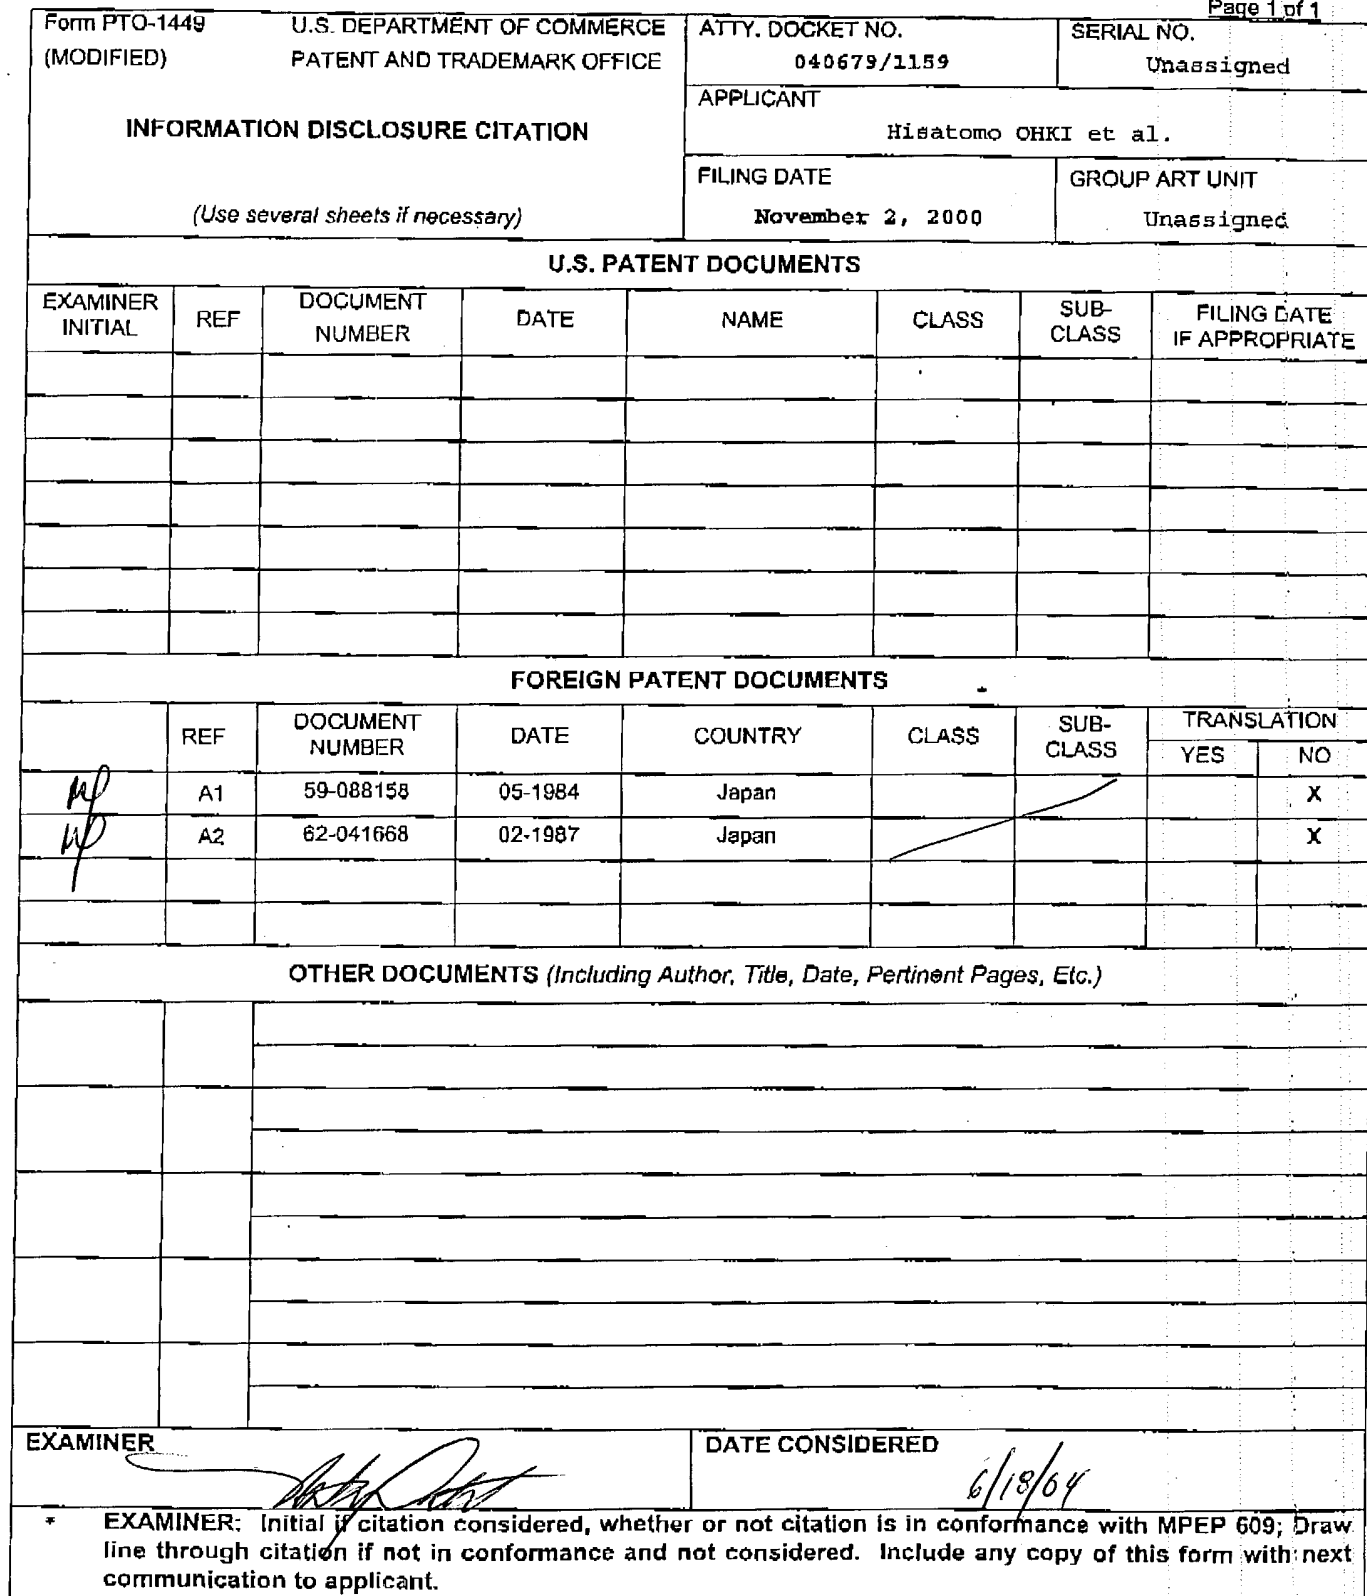 Page 1 of 1
Form PTO-1449 U.S. DEPARTMENT OF COMMERCE
(MODIFIED) PATENT AND TRADEMARK OFFICE
INFORMATION DISCLOSURE CITATION
(Use several sheets if necessary)
ATTY. DOCKET NO.
040679/1159
SERIAL NO.
Unassigned
APPLICANT
Hisatomo OHKI et al.
FILING DATE
November 2, 2000
GROUP ART UNIT
Unassigned
U.S. PATENT DOCUMENTS
EXAMINER INITIAL REF DOCUMENT NUMBER DATE NAME CLASS SUB-CLASS FILING DATE IF APPROPRIATE
FOREIGN PATENT DOCUMENTS
REF DOCUMENT NUMBER DATE COUNTRY CLASS SUB-CLASS TRANSLATION
YES NO
A1 59-088158 05-1984 Japan X
A2 62-041668 02-1987 Japan X
OTHER DOCUMENTS (Including Author, Title, Date, Pertinent Pages, Etc.)
EXAMINER
DATE CONSIDERED
6/18/04
* EXAMINER: Initial if citation considered, whether or not citation is in conformance with MPEP 609; Draw
line through citation if not in conformance and not considered. Include any copy of this form with next
communication to applicant.